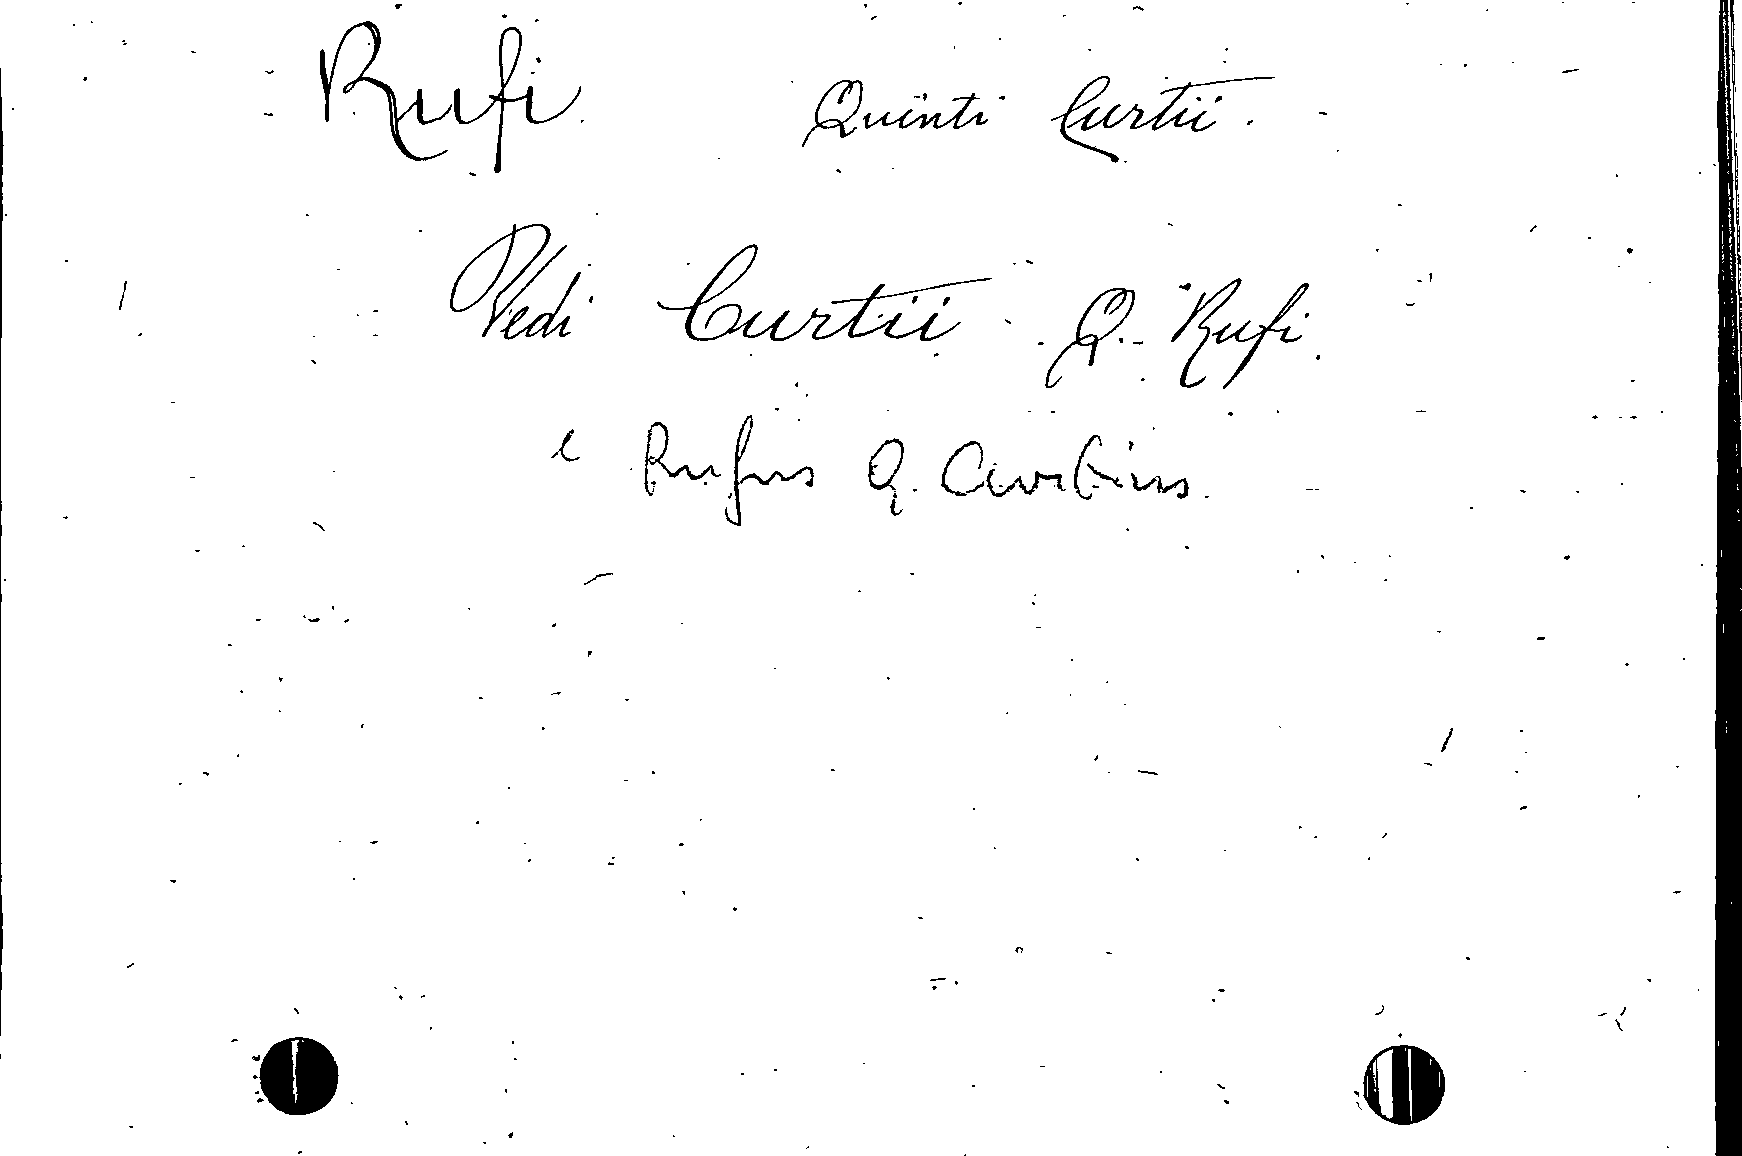 Rufi Quinti Curtii.
Vedi Curtii Q. Rufi
e Rufus Q. Curtius